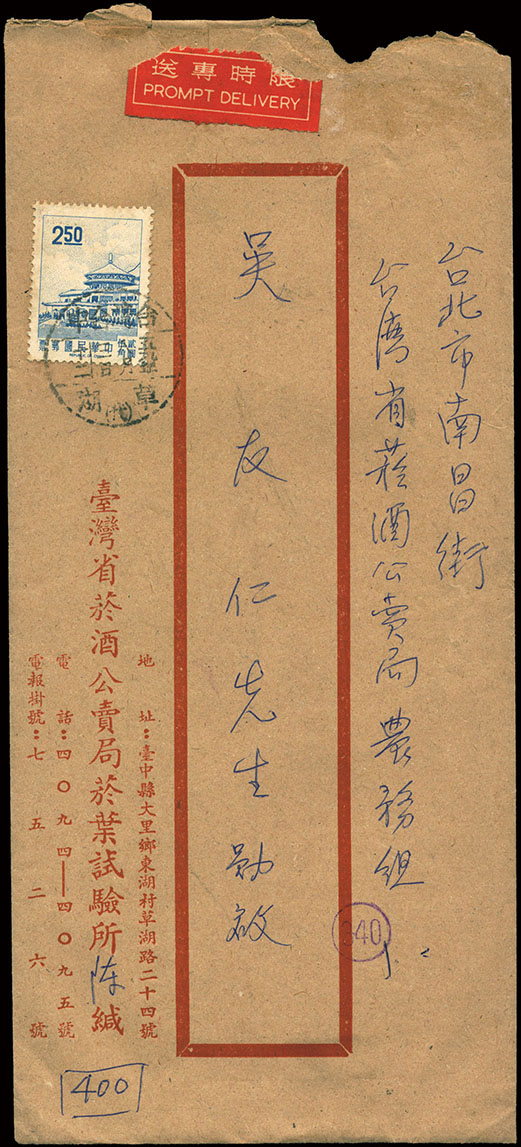 限時專送
PROMPT DELIVERY
2.50
中華民國郵票
台北市南昌街
台灣省菸酒公賣局農務組
吳友仁先生勛啟
340
地址：臺中縣大里鄉東湖村草湖路二十四號
臺灣省菸酒公賣局菸葉試驗所陈緘
電話：四〇九四—四〇九五號
電報掛號：七五二六號
400